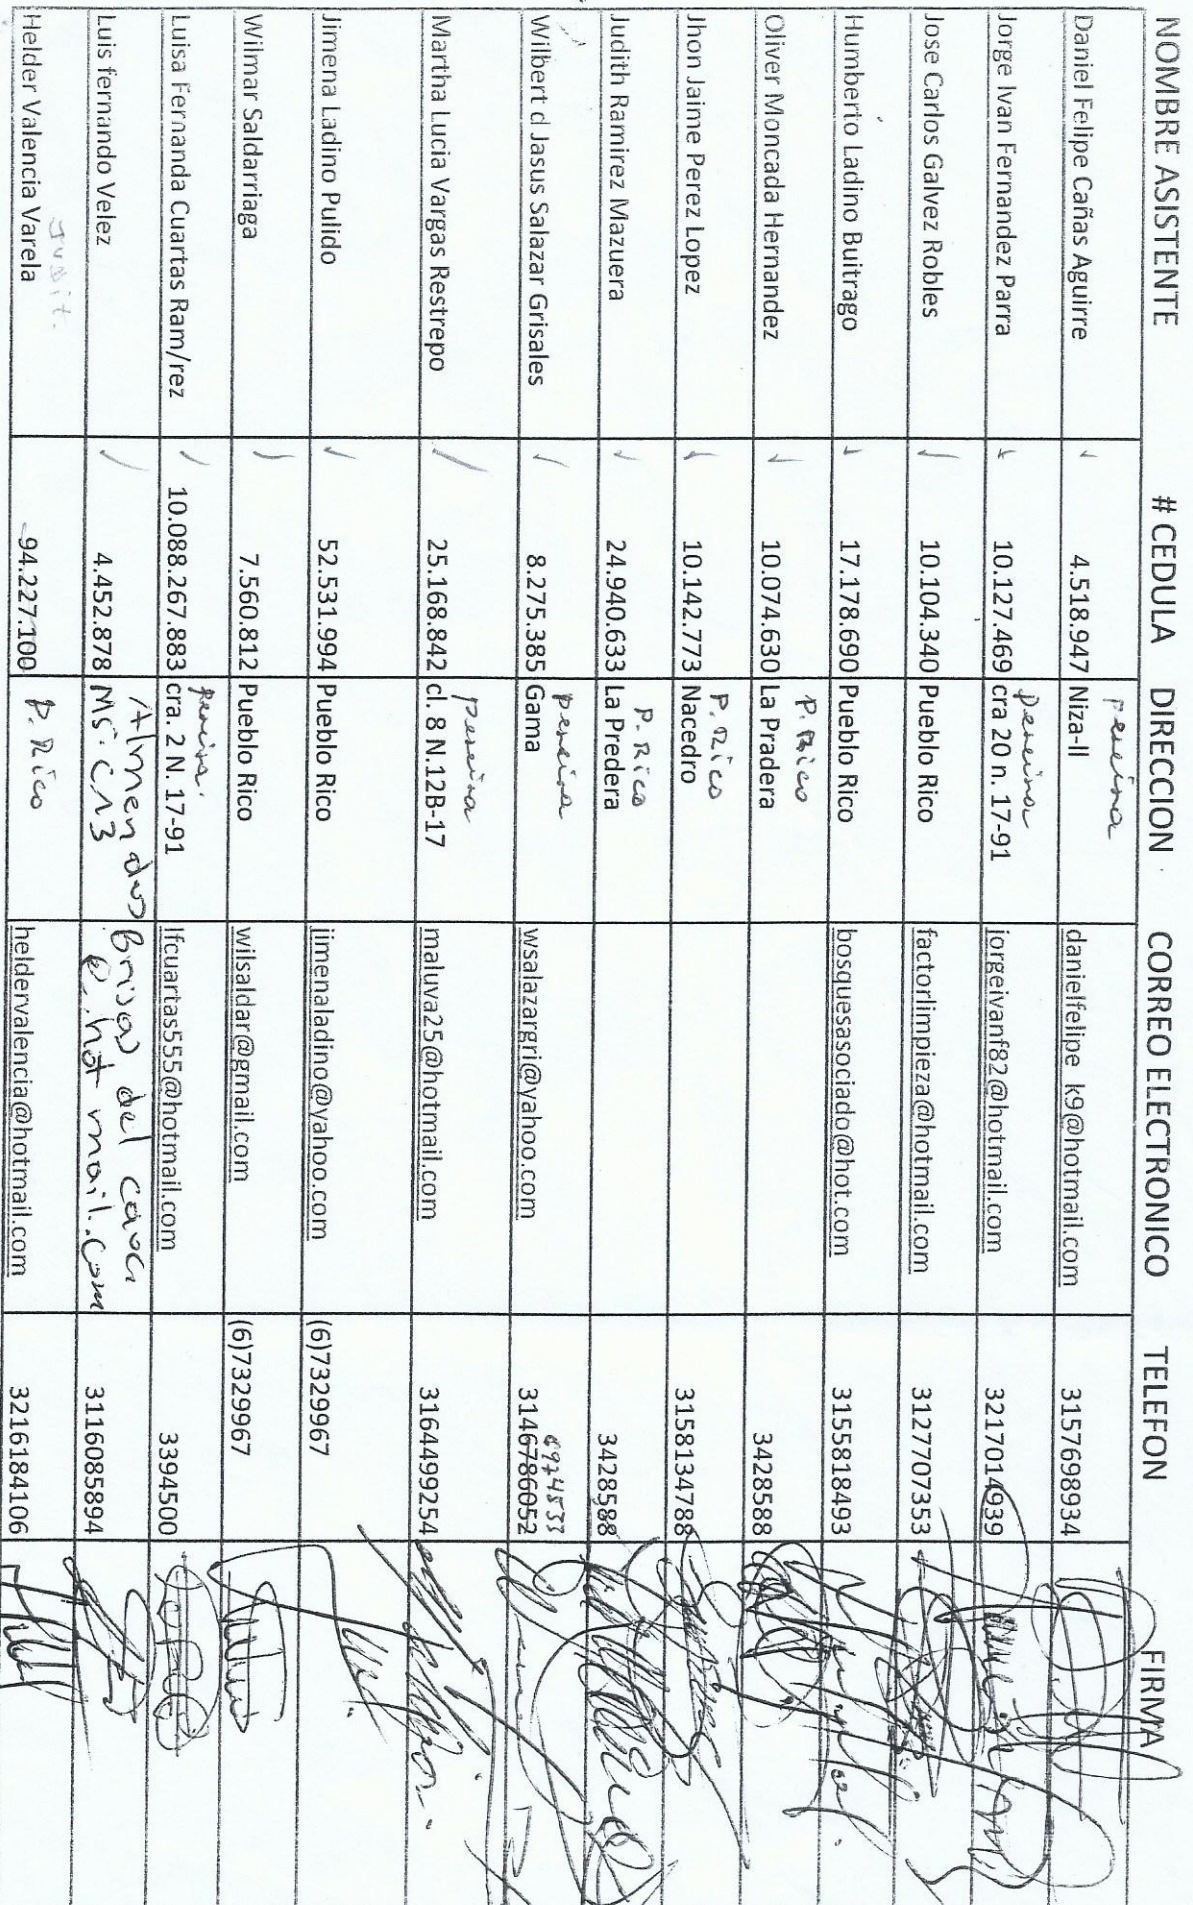 NOMBRE ASISTENTE # CEDULA DIRECCION CORREO ELECTRONICO TELEFON FIRMA
pereira
Daniel Felipe Cañas Aguirre 4.518.947 Niza-II danielfelipe k9@hotmail.com 3157698934
pereira
Jorge Ivan Fernandez Parra 10.127.469 cra 20 n. 17-91 jorgeivanf82@hotmail.com 3217014939
Jose Carlos Galvez Robles 10.104.340 Pueblo Rico factorlimpieza@hotmail.com 3127707353
Humberto Ladino Buitrago 17.178.690 Pueblo Rico bosquesasociado@hot.com 3155818493
P. Rico
Oliver Moncada Hernandez 10.074.630 La Pradera 3428588
P. Rico
Jhon Jaime Perez Lopez 10.142.773 Nacedro 3158134788
P. Rico
Judith Ramirez Mazuera 24.940.633 La Predera 3428588
pereira
Wilbert d Jasus Salazar Grisales 8.275.385 Gama wsalazargri@yahoo.com 3146786052
pereira
Martha Lucia Vargas Restrepo 25.168.842 cl. 8 N.12B-17 maluva25@hotmail.com 3164499254
Jimena Ladino Pulido 52.531.994 Pueblo Rico jimenaladino@yahoo.com (6)7329967
Wilmar Saldarriaga 7.560.812 Pueblo Rico wilsaldar@gmail.com (6)7329967
pereira
Luisa Fernanda Cuartas Ram/rez 10.088.267.883 cra. 2 N. 17-91 lfcuartas555@hotmail.com 3394500
Almendros Brisas del cauca
Luis fernando Velez 4.452.878 MS. C13 @.hotmail.com 3116085894
P. Rico
Helder Valencia Varela 94.227.100 heldervalencia@hotmail.com 3216184106